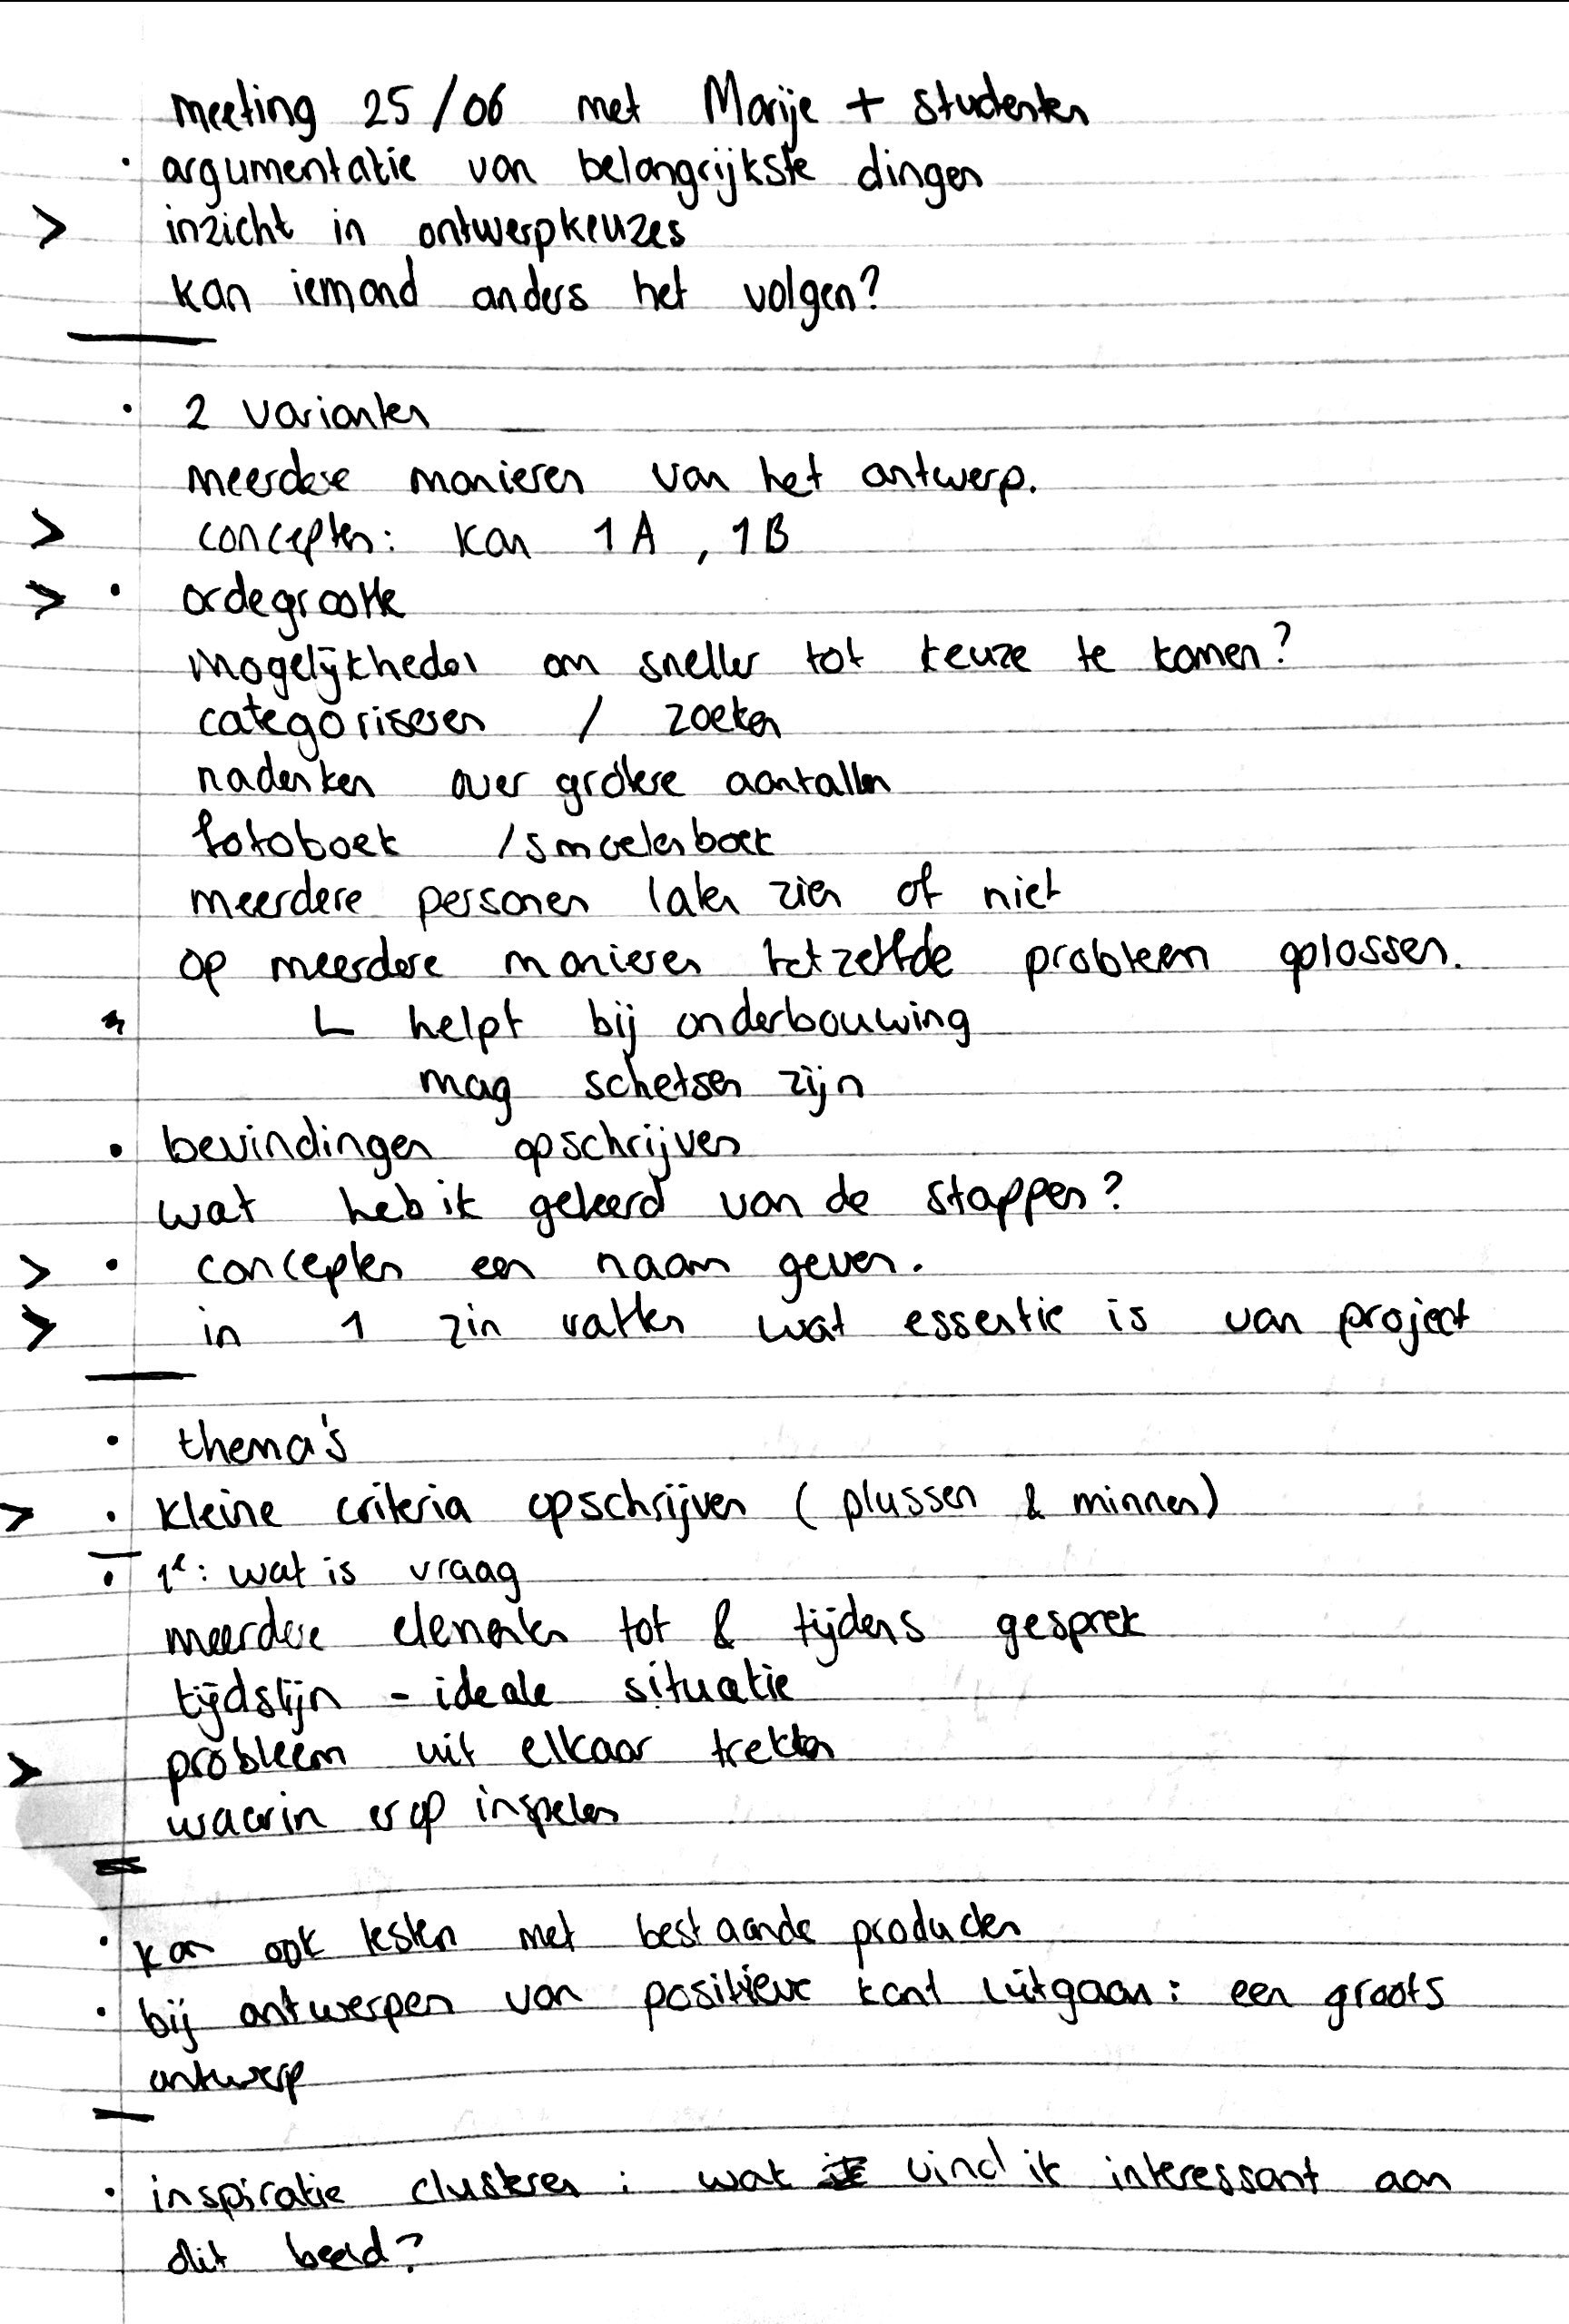 meeting 25/06 met Marije + studenten
• argumentatie van belangrijkste dingen
> inzicht in ontwerpkeuzes
kan iemand anders het volgen?
• 2 varianten
meerdere manieren van het ontwerp.
> concepten: kan 1A, 1B
> • ordegrootte
mogelijkheden om sneller tot keuze te komen?
categoriseren / zoeken
nadenken over grotere aantallen
fotoboek / smoelenboek
meerdere personen laten zien of niet
op meerdere manieren hetzelfde probleem oplossen.
* L helpt bij onderbouwing
mag schetsen zijn
• bevindingen opschrijven
wat heb ik geleerd van de stappen?
> • concepten een naam geven.
> in 1 zin vatten wat essentie is van project
• thema's
> • kleine criteria opschrijven (plussen & minnen)
• 1e: wat is vraag
meerdere elementen tot & tijdens gesprek
tijdslijn - ideale situatie
> probleem uit elkaar trekken
waarin erop inspelen
• kan ook testen met bestaande producten
• bij ontwerpen van positieve kant uitgaan: een groots
ontwerp
• inspiratie clusteren: wat vind ik interessant aan
dit beeld?